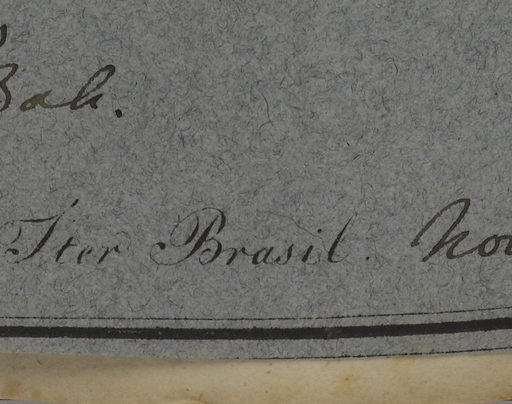 Bah.
Iter Brasil. Nov